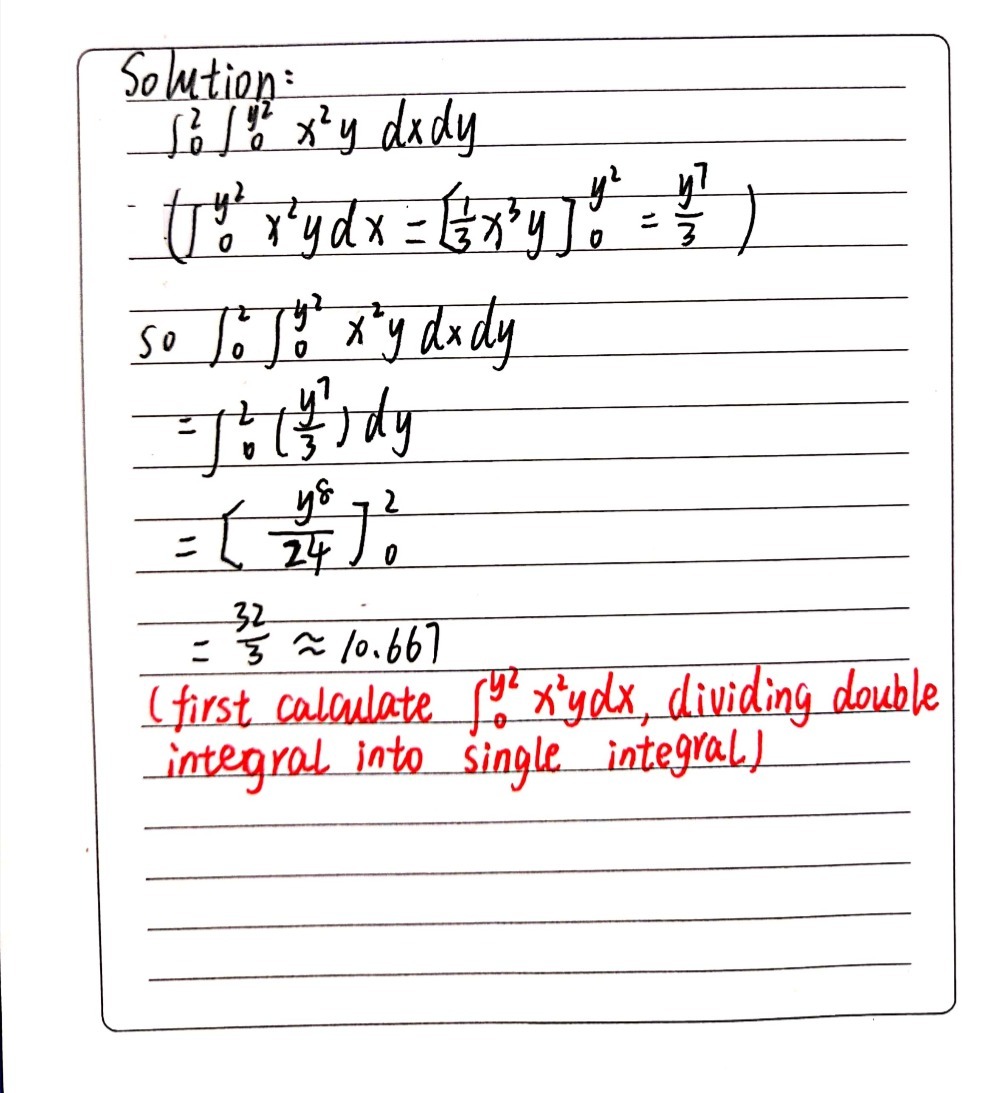 Solution:
∫₀² ∫₀^{y²} x²y dxdy
(∫₀^{y²} x²ydx = [1/3 x³y]₀^{y²} = y⁷/3)
so ∫₀² ∫₀^{y²} x²y dxdy
= ∫₀² (y⁷/3) dy
= [y⁸/24]₀²
= 32/3 ≈ 10.667
(first calculate ∫₀^{y²} x²ydx, dividing double
integral into single integral)